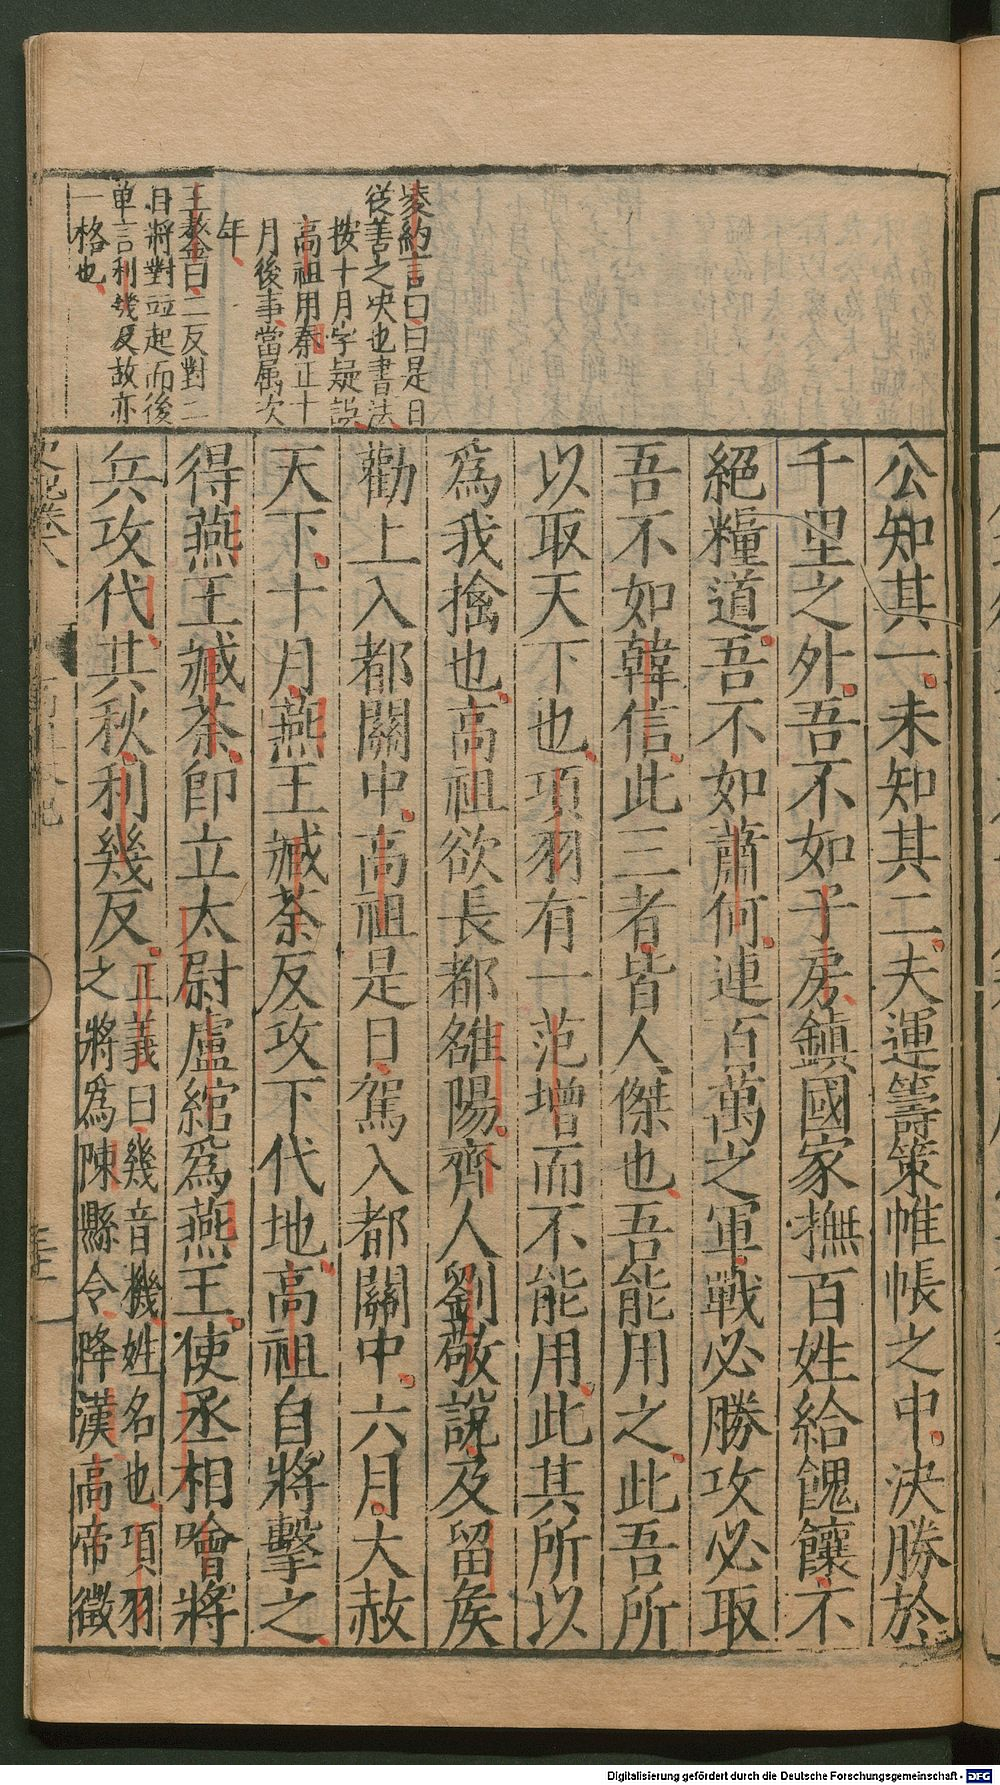 凌約言曰曰是日
從善之决也書法
按十月字疑誤
高祖用秦正十
月後事當屬次
年
王慈會曰二反對二
月將對豆起而後
單言利幾反故亦
一格也
公知其一未知其二夫運籌策帷帳之中決勝於
千里之外吾不如子房鎮國家撫百姓給餽饟不
絕糧道吾不如蕭何連百萬之軍戰必勝攻必取
吾不如韓信此三者皆人傑也吾能用之此吾所
以取天下也項羽有一范增而不能用此其所以
爲我擒也高祖欲長都雒陽齊人劉敬說及留矦
勸上入都關中高祖是日駕入都關中六月大赦
天下十月燕王臧荼反攻下代地高祖自將擊之
得燕王臧荼即立太尉盧綰爲燕王使丞相噲將
兵攻代其秋利幾反
正義曰幾音機姓名也項羽
之將爲陳縣令降漢高帝徵
史記卷八
高祖本紀